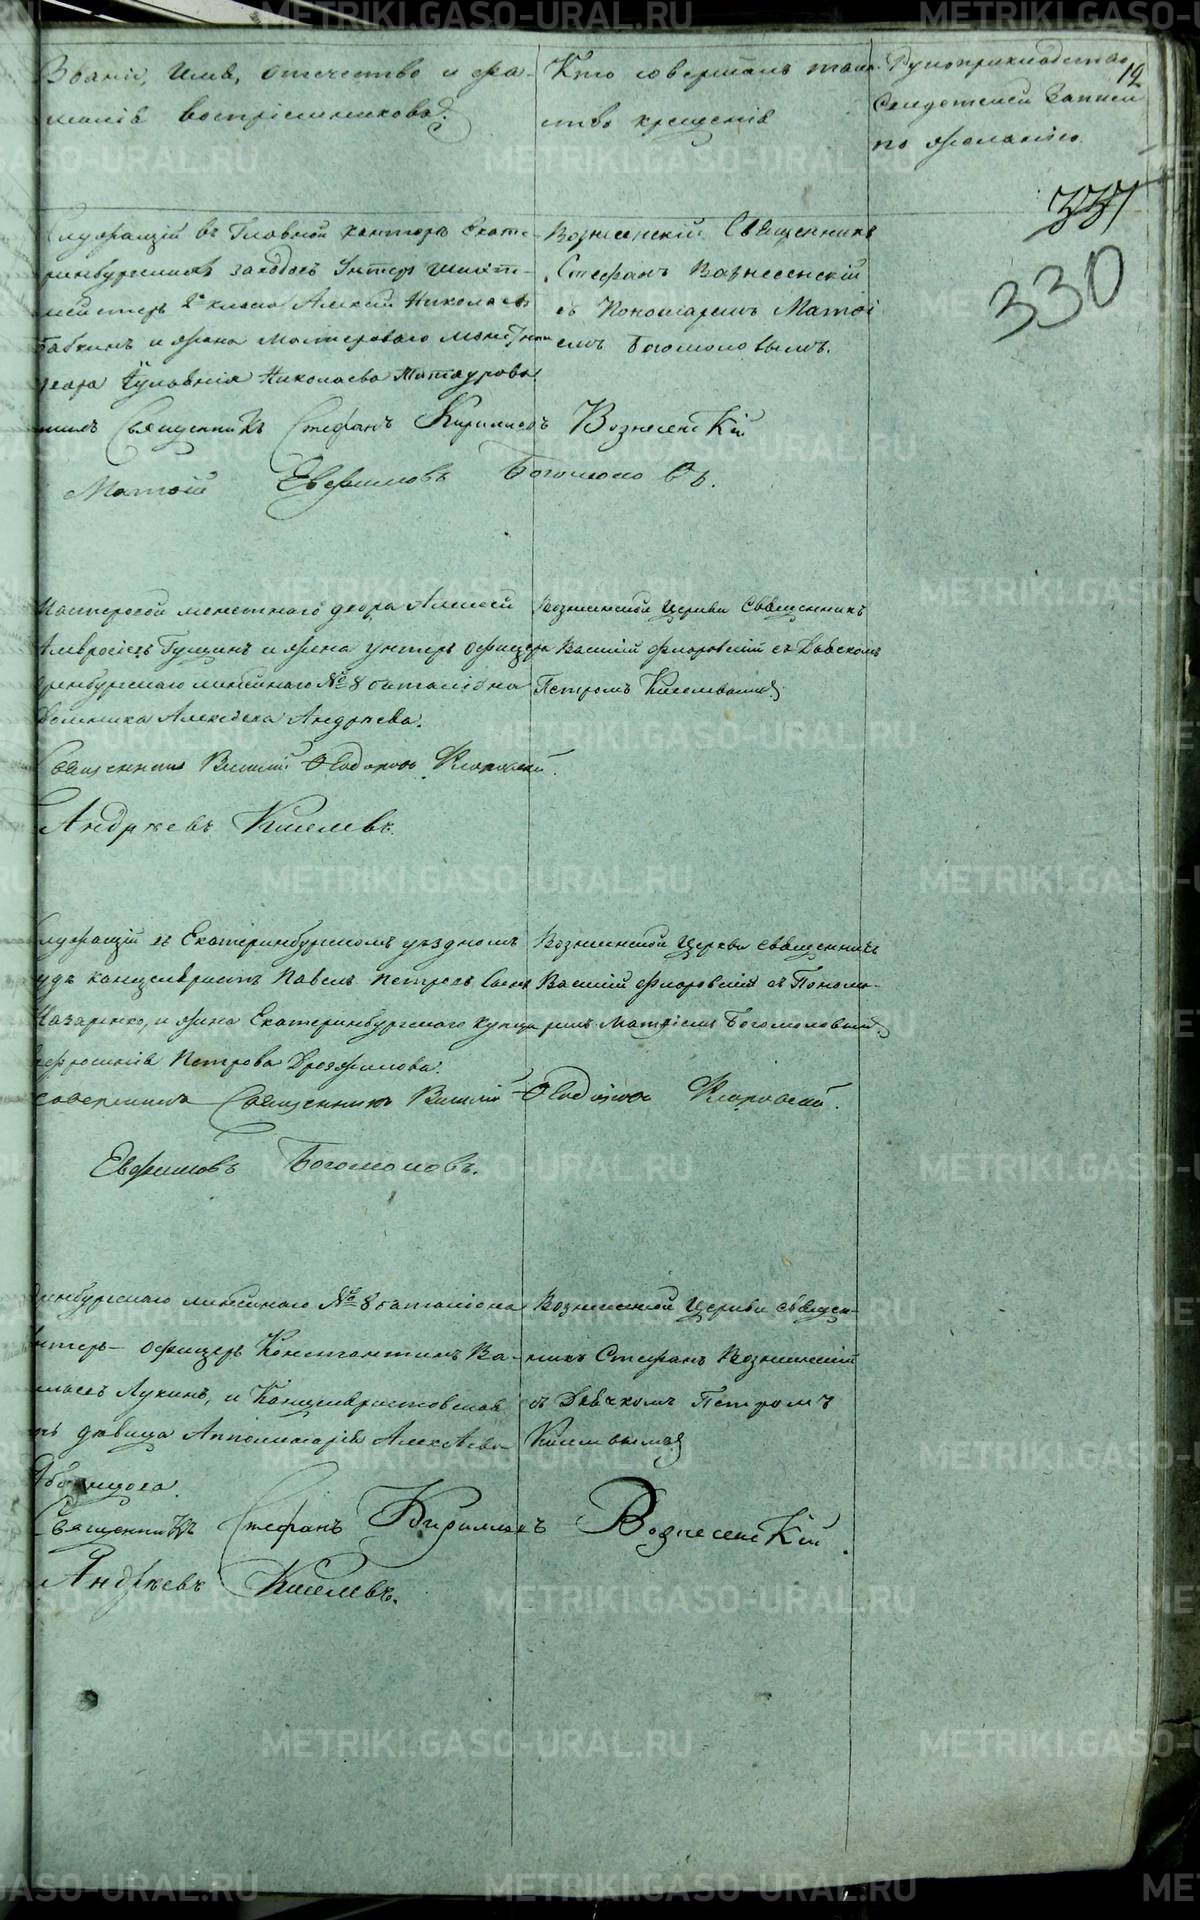 Званіе, Имя, отечество и фа-
милія воспріемниковъ.
Кто совершалъ таин-
ство крещенія
Рукоприкладство
Свидетелей Записи
по желанію.
12
337
330
Служащій въ Главной канторѣ Екате-
ринбургскихъ заводовъ Унтеръ шихт-
мейстеръ 2го класса Алексій Николаевъ
Бабкинъ и жена мастероваго монетнаго
двора Николаева
Вознесенскій Священникъ
Стефанъ Вознесенскій
съ Пономаремъ Матѳі
емъ Богомоловымъ.
Священникъ Стефанъ Кириловъ Вознесенскій
Матѳій Евфимовъ Богомоловъ.
Мастеровой монетнаго двора Алексей
Амвросіевъ Гущинъ и жена унтеръ офицера
Оренбургскаго линѣйнаго № 8 баталіона
Домника Алексѣева Андреева.
Вознесенской Церкви Священникъ
Василій Флоровскій съ Дьячкомъ
Петромъ Киселевымъ
Священникъ Василій Ѳеодоровъ Флоровскій.
Андреевъ Киселевъ.
Служащій въ Екатеринбургскомъ уѣздномъ
судѣ канцеляристъ Павелъ Петровъ
Назаренко, и жена Екатеринбургскаго купца
Ефросинія Петрова Дрозжилова.
Вознесенской Церкви священникъ
Василій Флоровскій съ Понома-
ремъ Матѳіемъ Богомоловымъ
совершилъ Священникъ Василій Ѳеодоровъ Флоровскій.
Евфимовъ Богомоловъ.
Оренбургскаго линѣйнаго № 8 баталіона
унтеръ-офицеръ Константинъ Ва-
сильевъ Лукинъ, и Канцеляристовская
дочь дѣвица Апполинарія Алексѣева
Вознесенской Церкви священ-
никъ Стефанъ Вознесенскій
съ Дьячкомъ Петромъ
Киселевымъ
Священникъ Стефанъ Кириловъ Вознесенскій.
Андреевъ Киселевъ.
METRIKI.GASO-URAL.RU